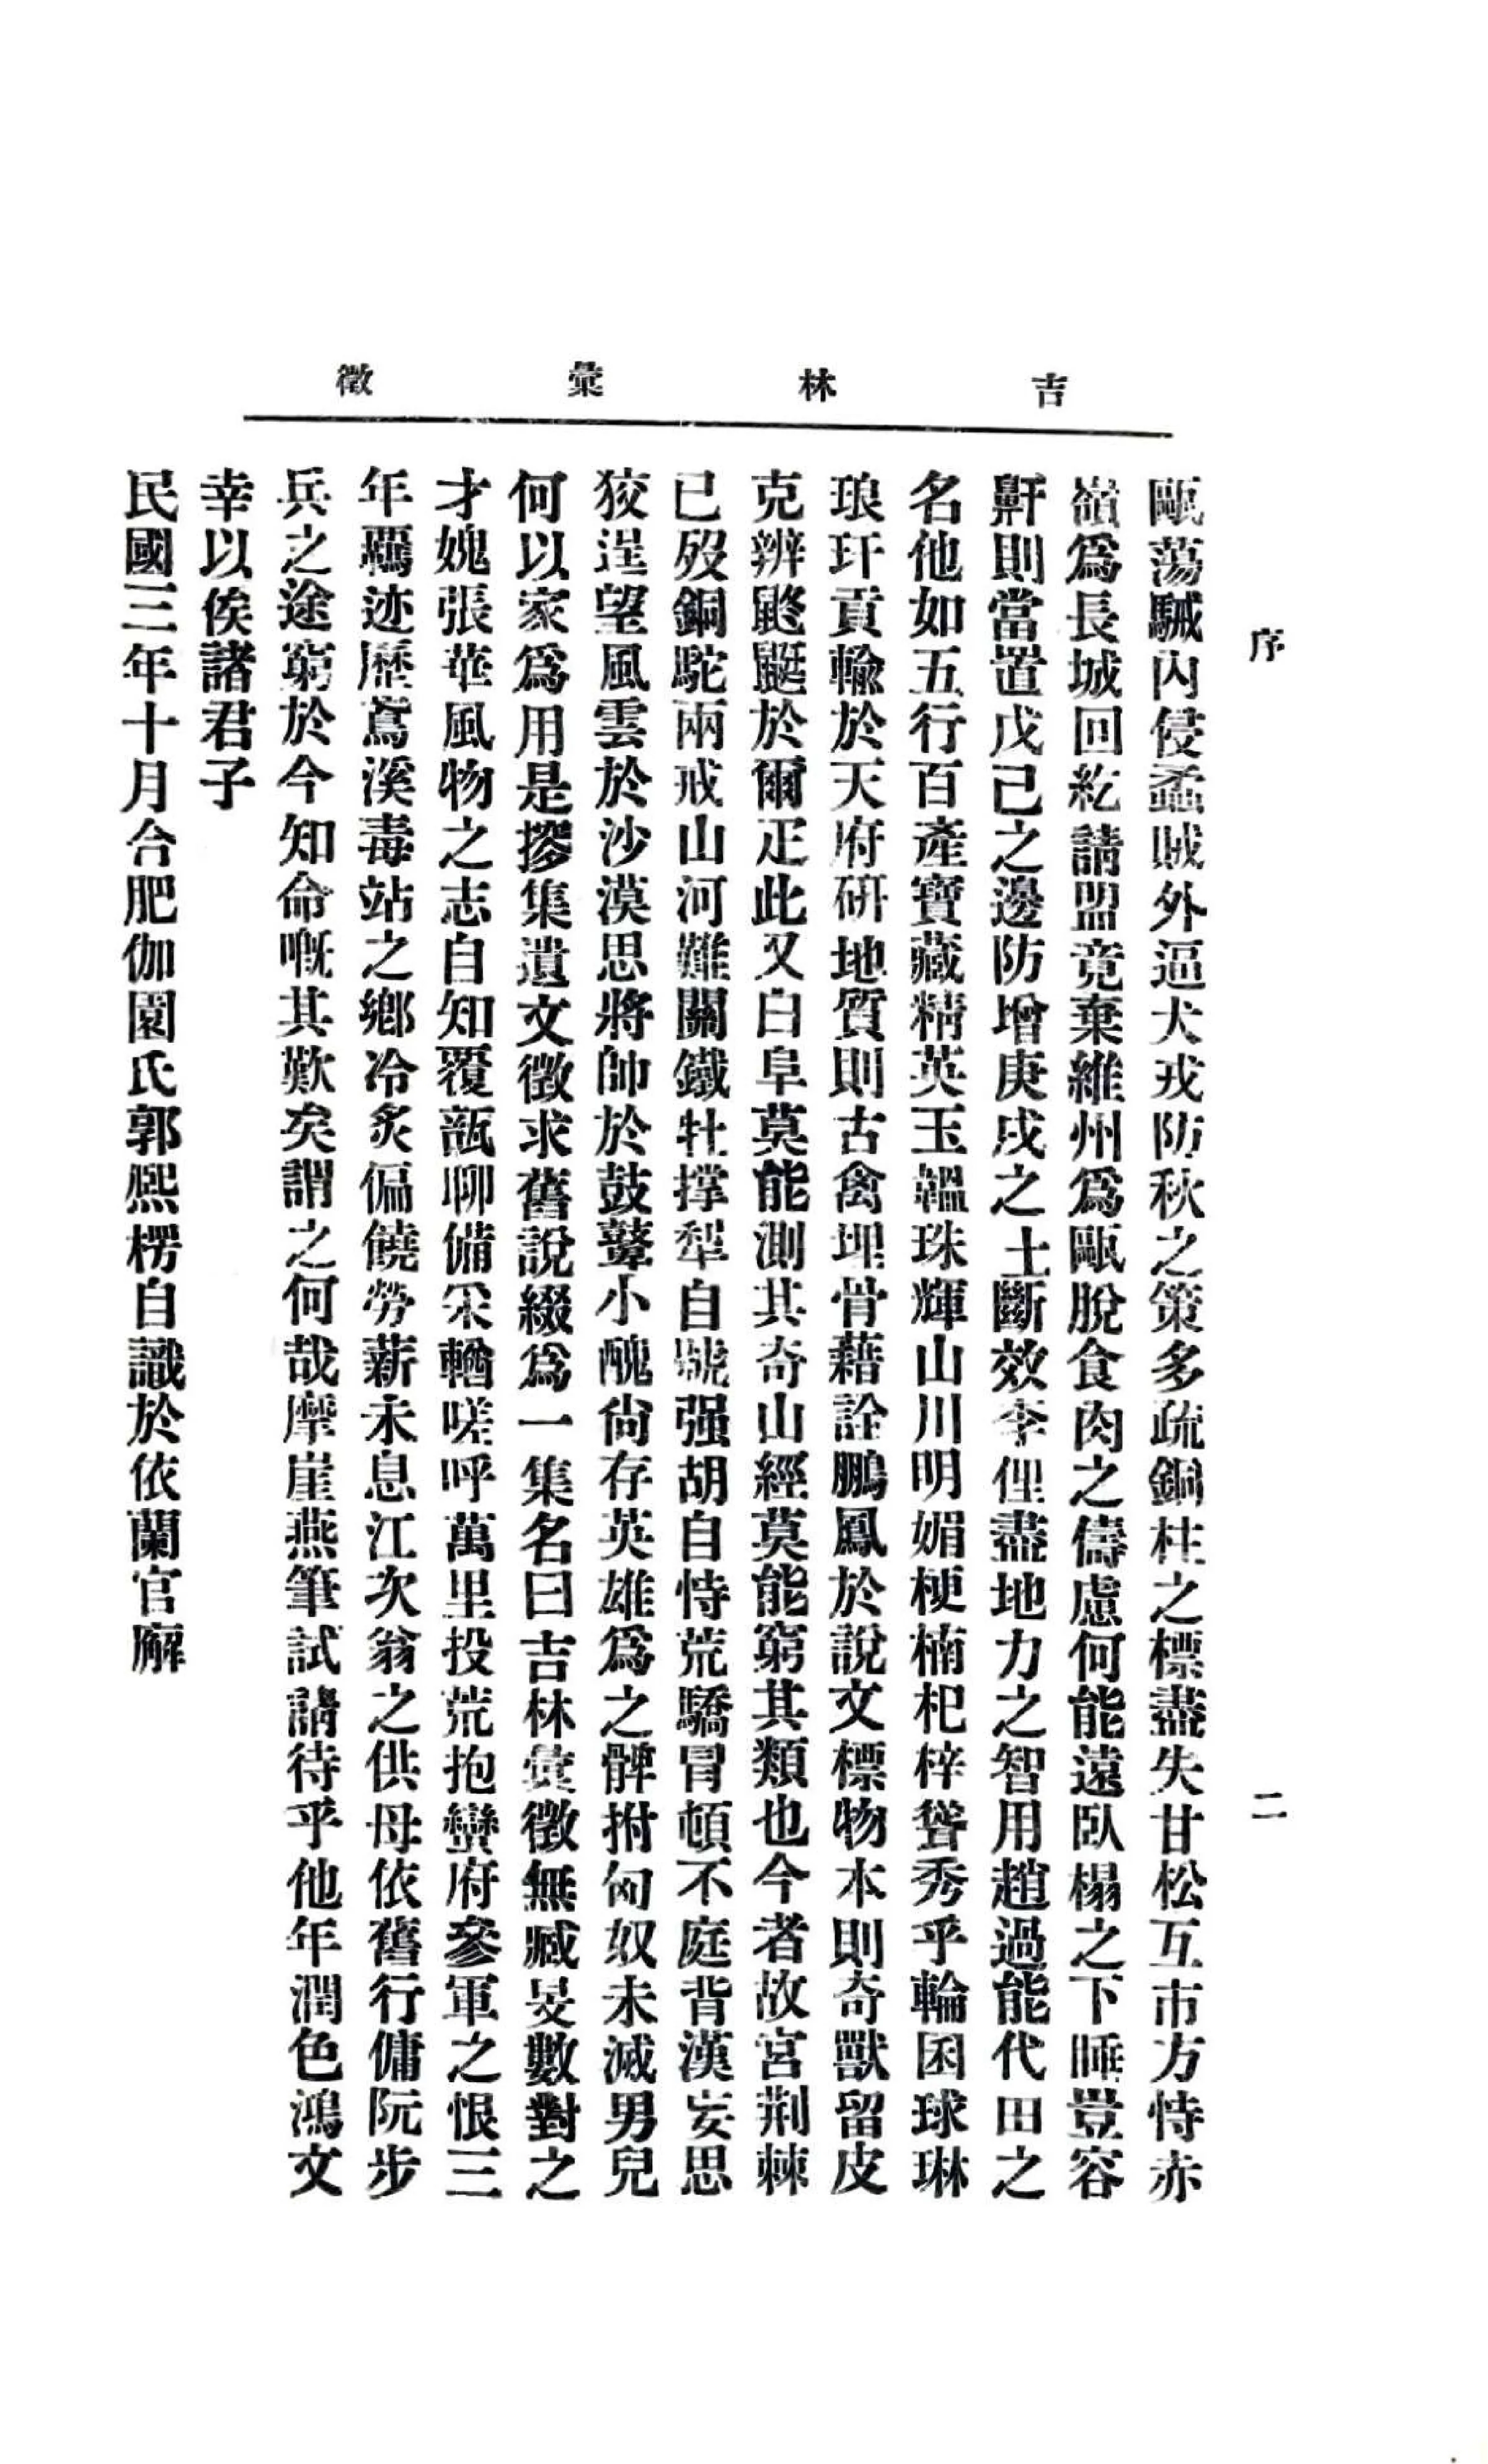 吉林彙徵
序 二
甌蕩駴內侵蟊賊外逼犬戎防秋之策多疏銅柱之標盡失甘松互市方恃赤
嶺爲長城回紇請盟竟棄維州爲甌脫食肉之儔慮何能遠臥榻之下睡豈容
鼾則當置戊己之邊防增庚戌之土斷效李俚盡地力之智用趙過能代田之
名他如五行百產寶藏精英玉韞珠輝山川明媚梗楠杞梓聳秀乎輪囷球琳
琅玕貢輸於天府硏地質則古禽埋骨藉詮鵬鳳於說文標物本則奇獸留皮
克辨鼨鼮於爾疋此又白阜莫能測其奇山經莫能窮其類也今者故宮荆棘
已歿銅駝兩戒山河難關鐵牡撑犂自號强胡自恃荒驕冒頓不庭背漢妄思
狡逞望風雲於沙漠思將帥於鼓鼙小醜尙存英雄爲之髀拊匈奴未滅男兒
何以家爲用是摎集遺文徵求舊說綴爲一集名曰吉林彙徵無臧旻數對之
才媿張華風物之志自知覆瓿聊備采輶嗟呼萬里投荒抱蠻府參軍之恨三
年羈迹歷鳶溪毒站之鄉冷炙偏饒勞薪未息江次翁之供母依舊行傭阮步
兵之途窮於今知命嘅其歎矣謂之何哉摩崖燕筆試請待乎他年潤色鴻文
幸以俟諸君子
民國三年十月合肥伽園氏郭熙楞自識於依蘭官廨